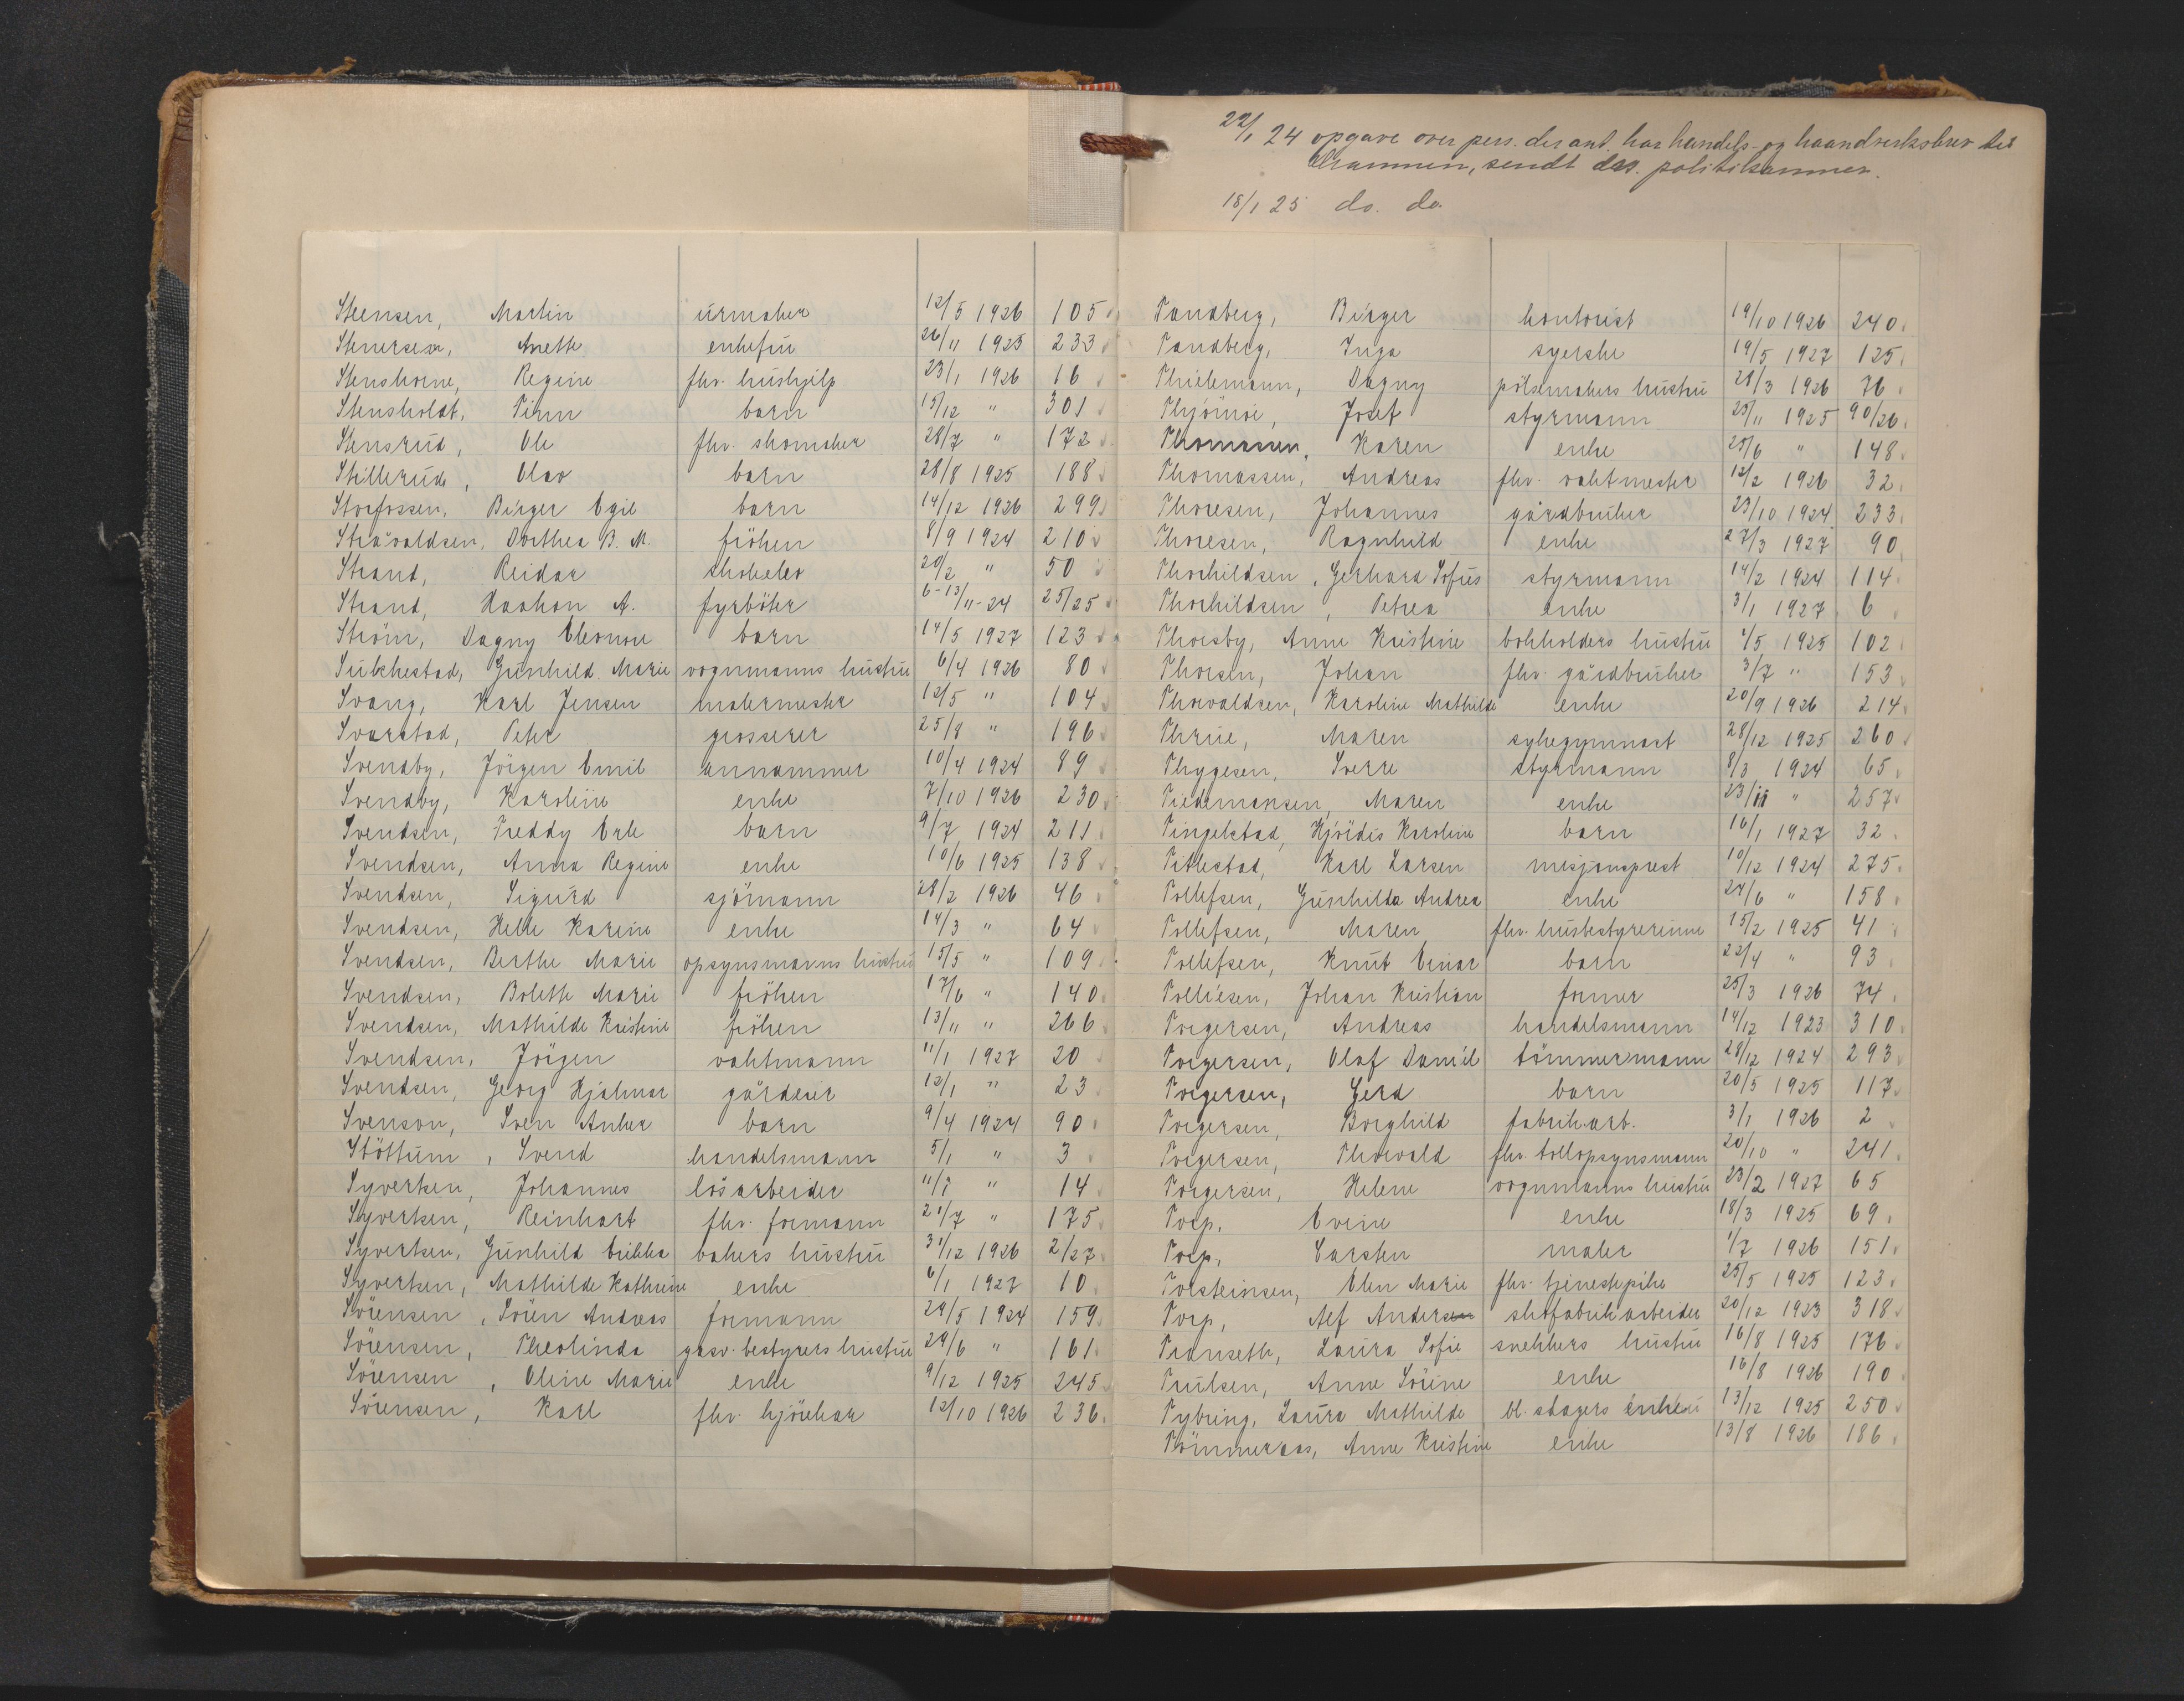 22/1 24 opgave over pers. der ant. har handels- og haandverksbrev til
Drammen, sendt drs. politikammer.
18/1 25 do. do.
Steensen, Martin urmaker 12/5 1926 105
Stenersen, Anette enkefru 26/11 1925 233
Stenshorne, Regine fhv. hushjelp 23/1 1926 16
Stensholdt, Finn barn 15/12 " 301
Stensrud, Ole fhv. skomaker 28/7 " 172
Stillerud, Olav barn 28/8 1925 188
Storfossen, Birger Egil barn 14/12 1926 299
Stråvaldsen, Dorthea B. M. fröken 8/9 1924 210
Strand, Reidar skoleelev 20/2 " 50
Strand, Haakon A. fyrböter 6-13/11-24 25/25
Ström, Dagny Eleonore barn 14/5 1927 123
Sulchestad, Gunhild Marie vognmanns hustru 6/4 1926 80
Svang, Karl Jensen malermester 12/5 " 104
Svarstad, Peter grosserer 25/8 " 196
Svendby, Jörgen Emil annammer 10/4 1924 89
Svendby, Karoline enke 7/10 1926 230
Svendsen, Freddy Erle barn 9/7 1924 211
Svendsen, Anna Regine enke 10/6 1925 138
Svendsen, Sigurd sjömann 28/2 1926 46
Svendsen, Helle Karine enke 14/3 " 64
Svendsen, Berthe Marie opsynsmanns hustru 15/5 " 109
Svendsen, Bolette Marie fröken 17/6 " 140
Svendsen, Mathilde Kristine fröken 13/11 " 266
Svendsen, Jörgen vaktmann 11/1 1927 20
Svendsen, Georg Hjalmar gårdeier 12/1 " 23
Svenson, Sven Anker barn 9/4 1924 90
Stöttum, Svend handelsmann 5/1 " 3
Syvertsen, Johannes lösarbeider 11/1 " 14
Syvertsen, Reinhart fhv. formann 21/7 " 175
Syvertsen, Gunhild Erikka bakers hustru 31/12 1926 2/27
Syvertsen, Mathilde Kathrine enke 6/1 1927 10
Sörensen, Sören Andreas formann 24/5 1924 159
Sörensen, Theolinda gasv. bestyrers hustru 24/6 " 161
Sörensen, Oline Marie enke 9/12 1925 245
Sörensen, Karl fhv. kjörekar 12/10 1926 236
Tandberg, Birger kontorist 19/10 1926 240
Tandberg, Inga syerske 19/5 1927 125
Thielemann, Dagny pölsemakers hustru 28/3 1926 76
Thjömöe, Josef styrmann 25/11 1925 90/26
Thomasen, Karen enke 25/6 " 148
Thomassen, Andreas fhv. vaktmester 12/2 1926 32
Thoresen, Johannes gårdbruker 23/10 1924 233
Thoresen, Ragnhild enke 27/3 1927 90
Thorkildsen, Gerhard Sofus styrmann 14/2 1924 114
Thorkildsen, Petrea enke 3/1 1927 6
Thoresby, Anne Kristine bokholders hustru 1/5 1925 102
Thorsen, Johan fhv. gårdbruker 3/7 " 153
Thorvaldsen, Karoline Mathilde enke 20/9 1926 214
Thrue, Maren sykegymnast 28/12 1925 260
Thygesen, Sverre styrmann 8/3 1924 65
Tiedemansen, Maren enke 23/11 " 257
Tingelstad, Hjördis Karoline barn 16/1 1927 32
Titlestad, Karl Larsen misjonsprest 10/12 1924 275
Tollefsen, Gunhilda Andrea enke 24/6 " 158
Tollefsen, Maren fhv. husbestyrerinne 15/2 1925 41
Tollefsen, Knut Einar barn 22/4 " 93
Tolliesen, Johan Kristian former 25/3 1926 74
Torgersen, Andreas handelsmann 14/12 1923 310
Torgersen, Olaf Daniel tömmermann 28/12 1924 293
Torgersen, Gerd barn 20/5 1925 117
Torgersen, Borghild fabrik.arb. 3/1 1926 2
Torgersen, Thorvald fhv. tollopsynsmann 20/10 " 241
Torgersen, Helene vognmanns hustru 23/2 1927 65
Torp, Evine enke 18/3 1925 69
Torp, Carsten maler 1/7 1926 151
Tolsteinsen, Elen Marie fhv. tjenestepike 25/5 1925 123
Torp, Alf Andersen skofabrikarbeider 20/12 1923 318
Transeth, Laura Sofie snekkers hustru 16/8 1925 176
Trulsen, Anne Sörine enke 16/8 1926 190
Tybring, Laura Mathilde bl. slagers enke 13/12 1925 250
Tömmeraas, Anne Kristine enke 13/8 1926 186